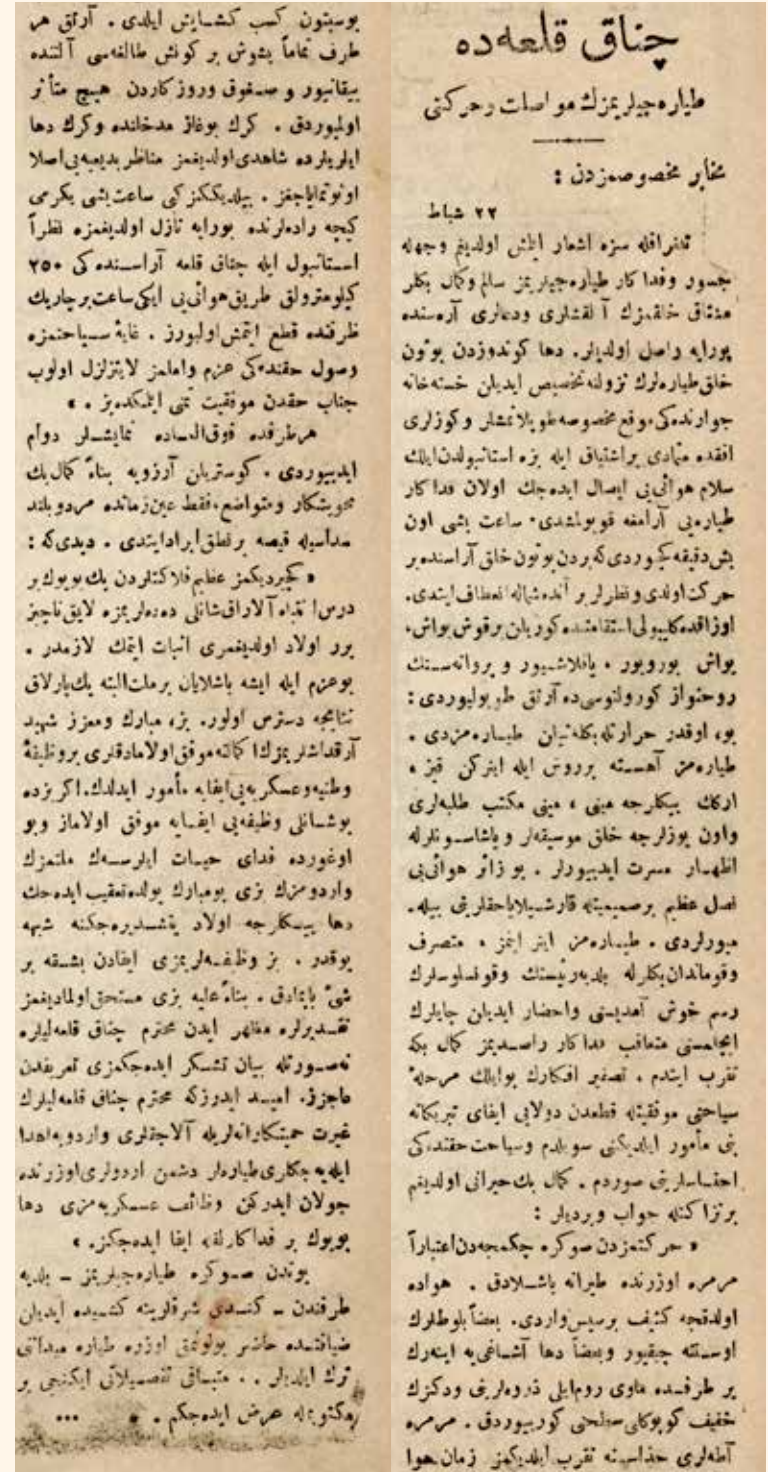 چناق قلعه‌ده
طیاره‌جیلریمزك مواصلت و حركتی
مخابر مخصوصمزدن :
۲۲ شباط
تلغرافله سزه اشعار ایلمش اولدیغم وجهله
جسور وفدا كار طیاره‌جیلریمز سالم وكمال بكلر
مشتاق خلقمزك آلقشلری ودعالری آره‌سنده
بورایه واصل اولدیلر. دها كوندوزدن بوتون
خلق طیاره‌لرك نزولنه تخصیص ایدیلن خسته‌خانه
جوارنده‌كی موقع مخصوصه طوپلانمشلر وكوزلری
افقده متمادی براشتیاق ایله بزه استانبولدن ایلك
سلام هوائی‌یی ایصال ایده‌جك اولان فداكار
طیاره‌یی آرامغه قویولمشدی. ساعت بشی اون
بش دقیقه كچیوردی كه بردن بوتون خلق آراسنده بر
حركت اولدی ونظرلر بر آنده شماله انعطاف ایتدی.
اوزاقده كلیبولی استقامتنده كورینن برقوش یواش،
یواش بویویور ، یاقلاشیور و پروانه‌سنك
روحنواز كورولتوسی ده آرتق طویولیوردی :
بو، اوقدر حرارتله بكله‌نیلن طیاره‌مزدی .
طیاره‌مز آهسته برروش ایله اینركن قیز ،
اركك بیكلرجه مینی ، مینی مكتب طلبه‌لری
واون یوزلرجه خلق موسیقه‌لر ویاشاسونلرله
اظهار مسرت ایدییورلر . بو زائر هوائی‌یی
نصل عظیم برصمیمیتله قارشیلایاجقلرینی بیله‌
میورلردی . طیاره‌مز اینر اینمز ، متصرف
وقوماندان بكلرله بلدیه رئیسنك وقونسولوسلرك
رسم خوش آمدیسنی واحضار ایدیلن چایلرك
ایچلمسنی متعاقب فداكار راصدیمز كمال بكه
تقرب ایتدم . تصفیر افكارك بوایلك مرحله‌ٔ
سیاحتی موفقیتله قطعدن دولایی ایفای تبریكاته
بنی مأمور ایلدیكنی سویلدم وسیاحت حقنده‌كی
احتساسلرینی صوردم . كمال بك حیرانی اولدیغم
برنزاكتله جواب ویردیلر :
« حركتمزدن صوكره چكمجه‌دن اعتباراً
مرمره اوزرنده طیرانه باشلادق . هواده
اولدقجه كثیف برسیس واردی. بعضاً بلوطلرك
اوستنه چیقیور وبعضاً دها آشاغی‌یه اینه‌رك
بر طرفده ماوی روم‌ایلی ذروه‌لرینی ودكزك
خفیف كوپوكلی سطحنی كورییوردق . مرمره
آطه‌لری حذاسینه تقرب ایلدیكمز زمان هوا
بوسبتون كسب كشایش ایلدی . آرتق هر
طرف تماماً یشوش بر كونش طالغه‌سی آلتنده
ییقانیور و صغوق وروزكاردن هیچ متأثر
اولمیوردق . كرك بوغاز مدخلنده وكرك دها
ایلریلرده شاهدی اولدیغمز مناظر بدیعه‌یی اصلا
اونوتمایاجغز . بیلدیككز كی ساعت بشی یكرمی
كچه راده‌لرنده بورایه نازل اولدیغمزه نظراً
استانبول ایله چناق قلعه آراسنده‌كی ۲۵۰
كیلومترولق طریق هوائی‌یی ایكی ساعت برچاریك
ظرفنده قطع ایتمش اولیورز . غایهٔ سیاحتمزه
وصول حقنده‌كی عزم واملمز لایتزلزل اولوب
جناب حقدن موفقیت تمنی ایلمكده‌یز . »
هرطرفده فوق‌العاده نمایشلر دوام
ایدییوردی . كوستریلن آرزویه بناءً كمال بك
محویتكار ومتواضع، فقط عین زمانده مردو بلند
صداسیله قیصه برنطق ایرادایتدی . دیدی كه :
« كچیردیكمز عظیم فلاكتلردن پك بویوك بر
درس انتباه آلارق شانلی دده‌لریمزه لایق ناچیز
برر اولاد اولدیغمزی اثبات ایتمك لازمدر .
بوعزم ایله ایشه باشلایان برملت البته پك پارلاق
نتایجه دسترس اولور. بز، مبارك ومعزز شهید
آرقداشلریمزك اكمالنه موفق اولامادقلری بروظیفهٔ
وطنیه وعسكریه‌یی ایفایه مأمور ایدلدك. اكر بزده
بوشانلی وظیفه‌یی ایفایه موفق اولاماز وبو
اوغورده فدای حیات ایلرسه‌ك ملتمزك
واردومزك بزی بومبارك یولده تعقیب ایده‌جك
دها بیكلرجه اولاد یتشدیره‌جكنه شبهه
یوقدر . بز وظیفه‌لریمزی ایفادن بشقه بر
شئ یاپمادق . بناءً علیه بزی مستحق اولمادیغمز
تقدیرلره مظهر ایدن محترم چناق قلعه‌لیلره
نه‌صورتله بیان تشكر ایده‌جكمزی تعریفدن
عاجزز. امید ایدرزكه محترم چناق قلعه‌لیلرك
غیرت حمیتكارانه‌لریله آلاجقلری واردویه اهدا
ایله‌یه‌جكلری طیاره‌لر دشمن اردولری اوزرنده
جولان ایدركن وظائف عسكریه‌مزی دها
بویوك بر فداكارلقله ایفا ایده‌جكز. »
بوندن صوكره طیاره‌جیلریمز ــ بلدیه
طرفندن ــ كندی شرفلرینه كشیده ایدیلن
ضیافتده حاضر بولونمق اوزره طیاره میداننی
ترك ایلدیلر . . متباقی تفصیلاتی ایكنجی بر
مكتوبمله عرض ایده‌جكم . * ...